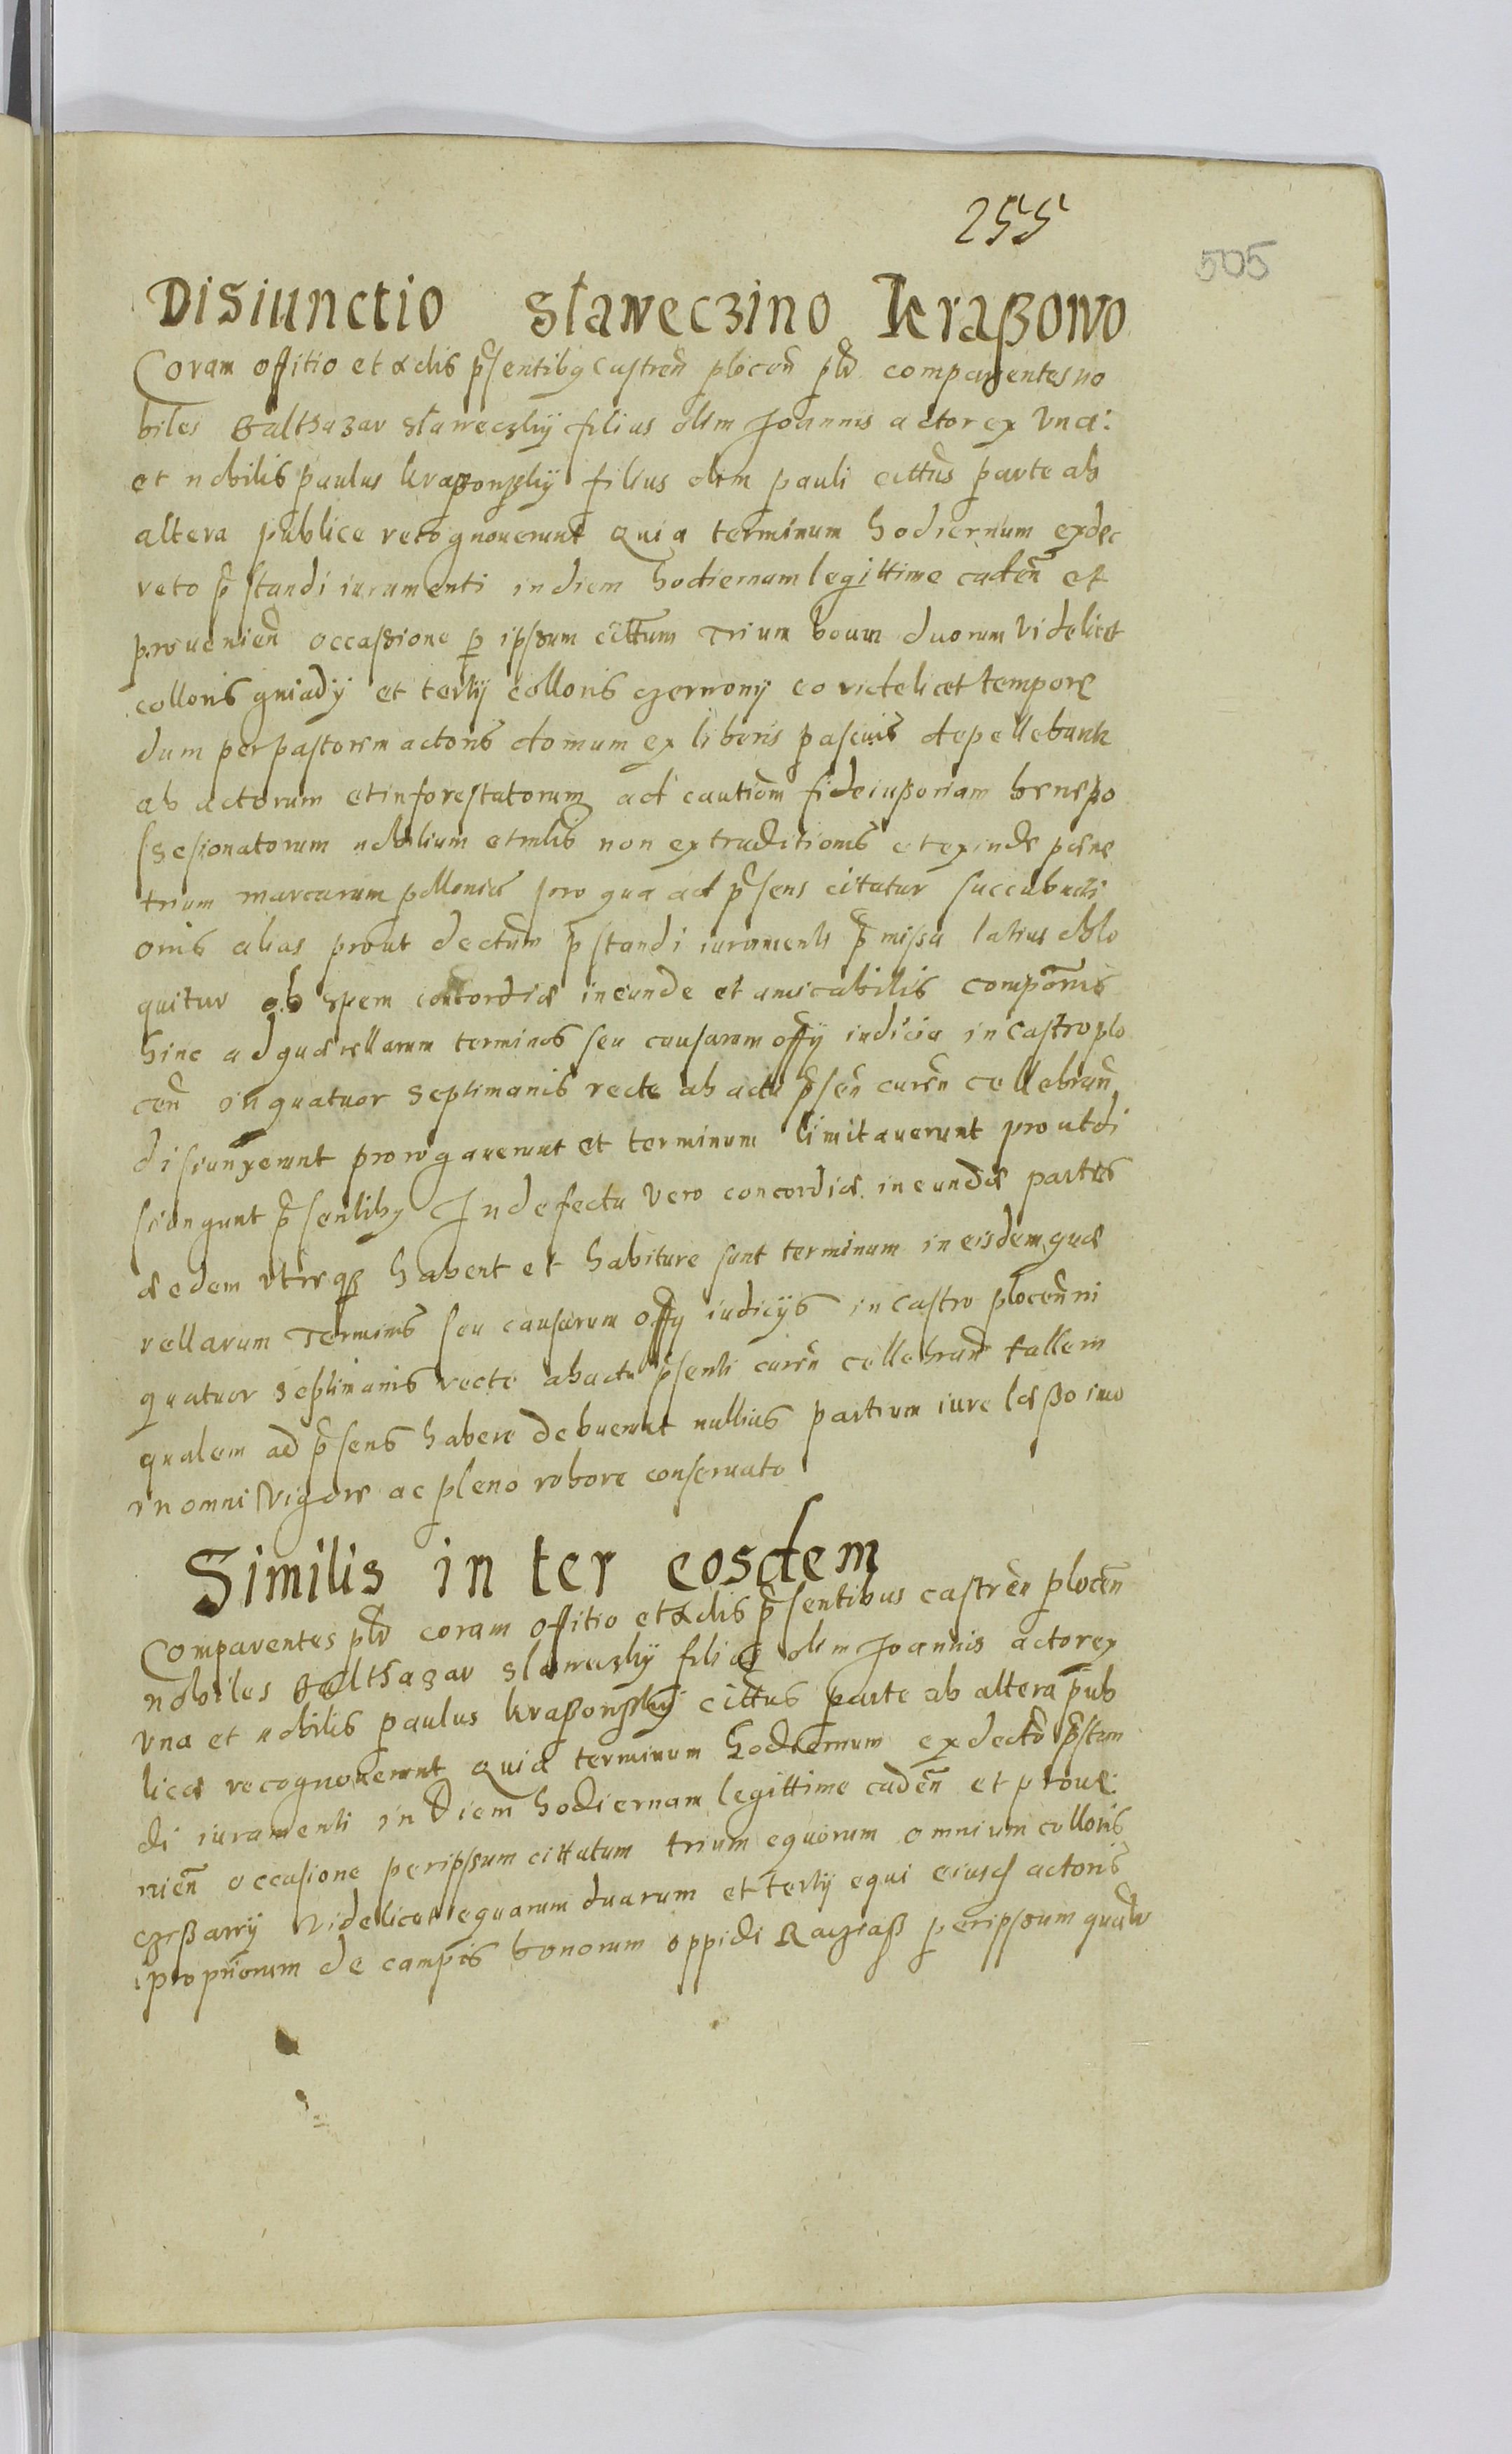 255
505
Disiunctio Slaweczino Kraßowo
Coram offitio et actis pͬsentibꝰ Castren̄ plocen̄ pld comparentes no
biles Balthazar Slaweczky filius olim Joannis actor ex vna:
et nobilis paulus kraßowsky filius olim pauli cittus parte ab
altera publice recognouerunt quia terminum hodiernum exdec
reto pͬstandi iuramenti indiem hodiernam legittime caden̄ et
prouenien̄ occassione p ipsum cittum Trium boum duorum videlicet
colloris gniady et tertij colloris czernony eo videlicet tempore
dum perpastorem actoris domum ex liberis pascuis depellebant
ab actorum etinforestatorum ad cautiom fideiußoriam benepo
ssesionatorum nobilium etmlis non extraditionis et exinde pene
trium marcarum pollonic pro qua ad pͬsens citatur succubuiti
onis alias prout dectum pͬstandi iuramenti pͬmissa latius oblo
quitur ob spem concordiæ ineunde et amicabilis componis
hinc ad quærellarum terminos seu causarum offy iudicia in castro plo
cen̄ in quatuor septimanis recte ab actu pͬsen̄ curen̄ cellebran̄
disiunxerunt prorogauerunt et terminum limitauerunt prout di
siungunt pͬsentibꝰ In defectu vero concordiæ ineundæ partes
æedem vtreqꝫ habent et habiture sunt terminum in eisdem quæ
rellarum Terminis seu causarum offy iudicijs in castro plocen̄ ni
quatuor septimanis recte abactu pͬsenti curen̄ cellebran̄ tallem
qualem ad pͬsens habere debuerunt nullius partium iure læßo imo
in omni vigore ac pleno robore conseruato
Similis in ter eosdem
Comparentes pld coram offitio et actis pͬsentibus castren̄ plocen̄
nobiles Balthazar Slaweczky filius olim Joannis actorex
vna et nobilis paulus kraßowsky cittus parte ab altera pub
licæ recognouerunt quia terminum hodiernum exdecto pͬstan
di iuramenti in Diem hodiernam legittime caden̄ et proue:
nien̄ occasione peripsum cittatum trium equorum omnium colloris
czeßawy videlicet equarum duarum et tertij equi eiusd actoris
propriorum de campis bonorum oppidi Racziaß peripsum qualr